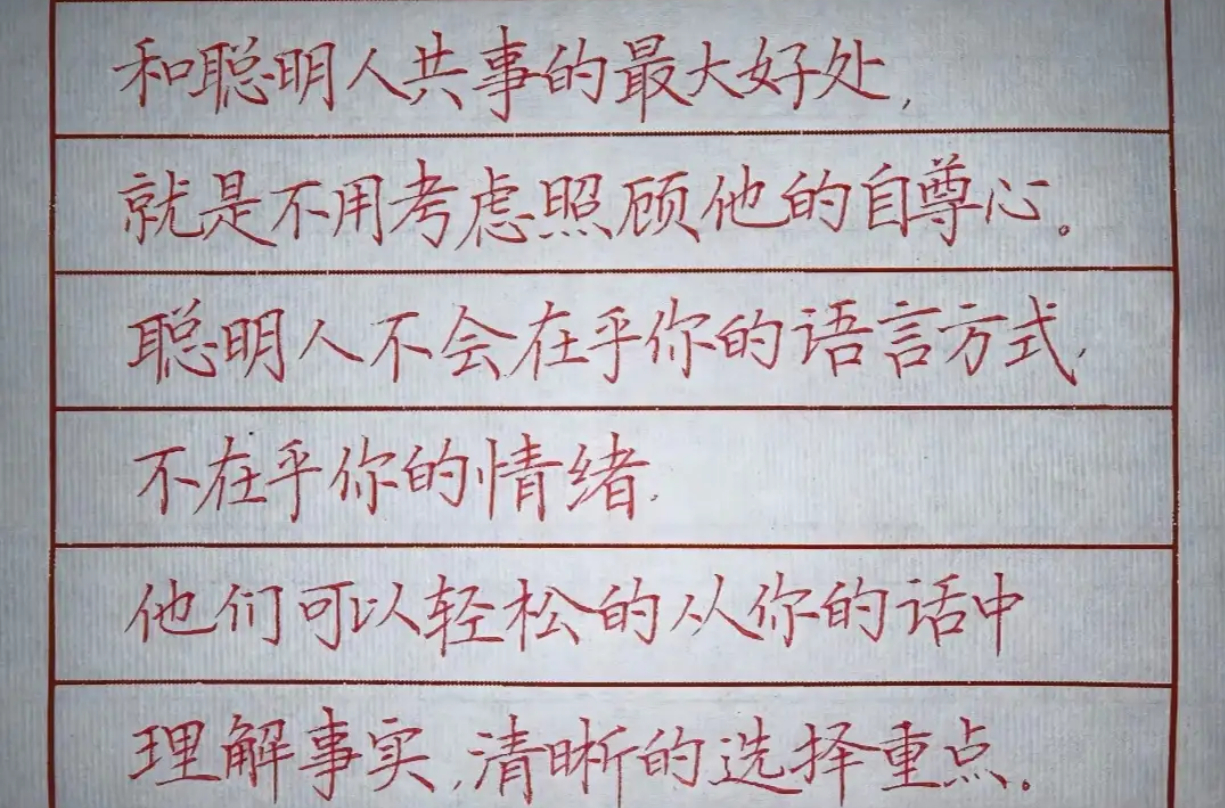 和聪明人共事的最大好处,
就是不用考虑照顾他的自尊心。
聪明人不会在乎你的语言方式,
不在乎你的情绪,
他们可以轻松的从你的话中
理解事实,清晰的选择重点。